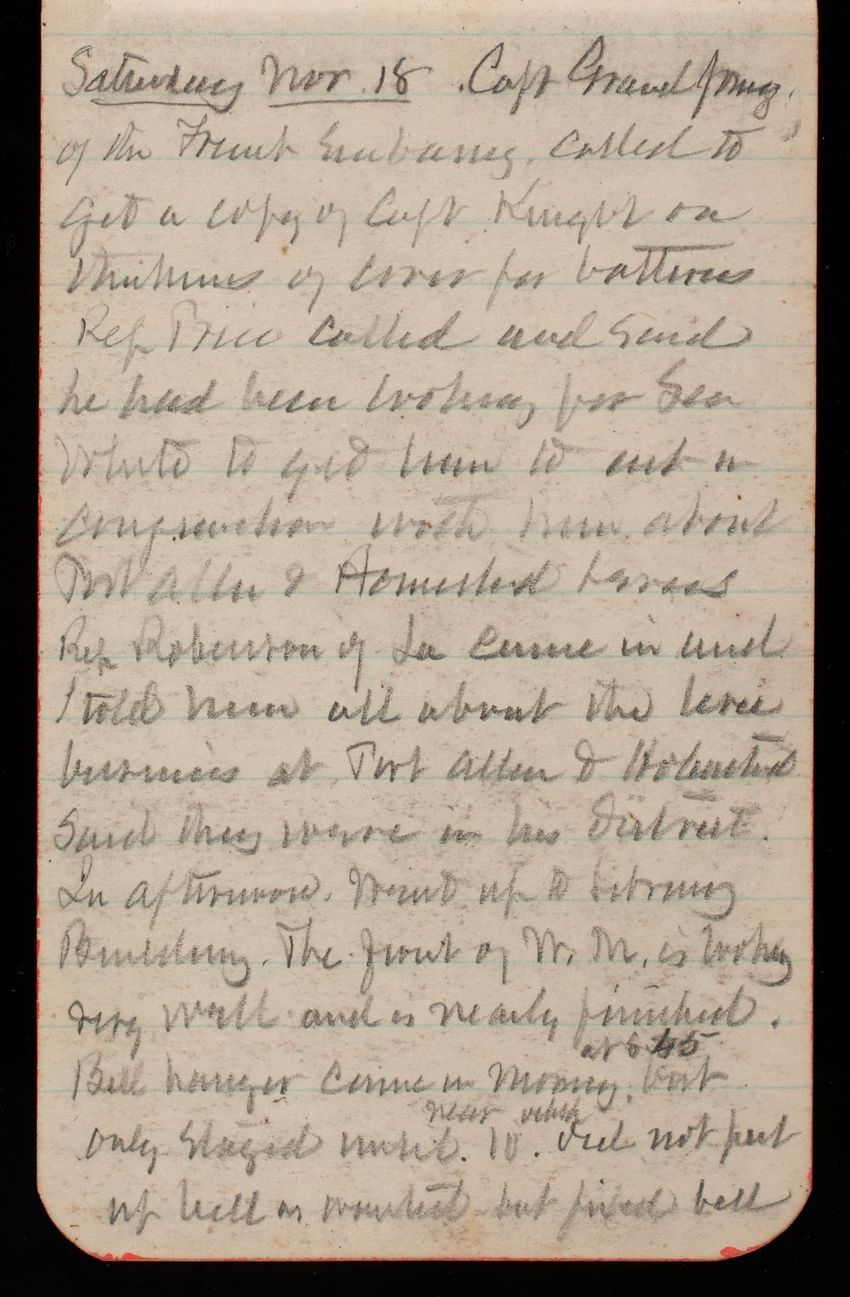 Saturday Nov. 18. Capt Grandprey,
of the French Embassy. Called to
get a copy of Capt Knight on
thickness of cover for batteries
Rep Price called and said
he had been looking for Sen
White to get him to act in
conjunction with him about
Port Allen & Homestead levees
Rep Robertson of La came in and
I told him all about the levee
business at Port Allen &
Said they were in his District.
In afternoon. Went up to Library
Building. The front of W. M. is looking
very well and is nearly finished.
at 8 45
Bell hanger came in morning, but
near
only stayed until. 10. did not put
up bell as wanted but fixed bell